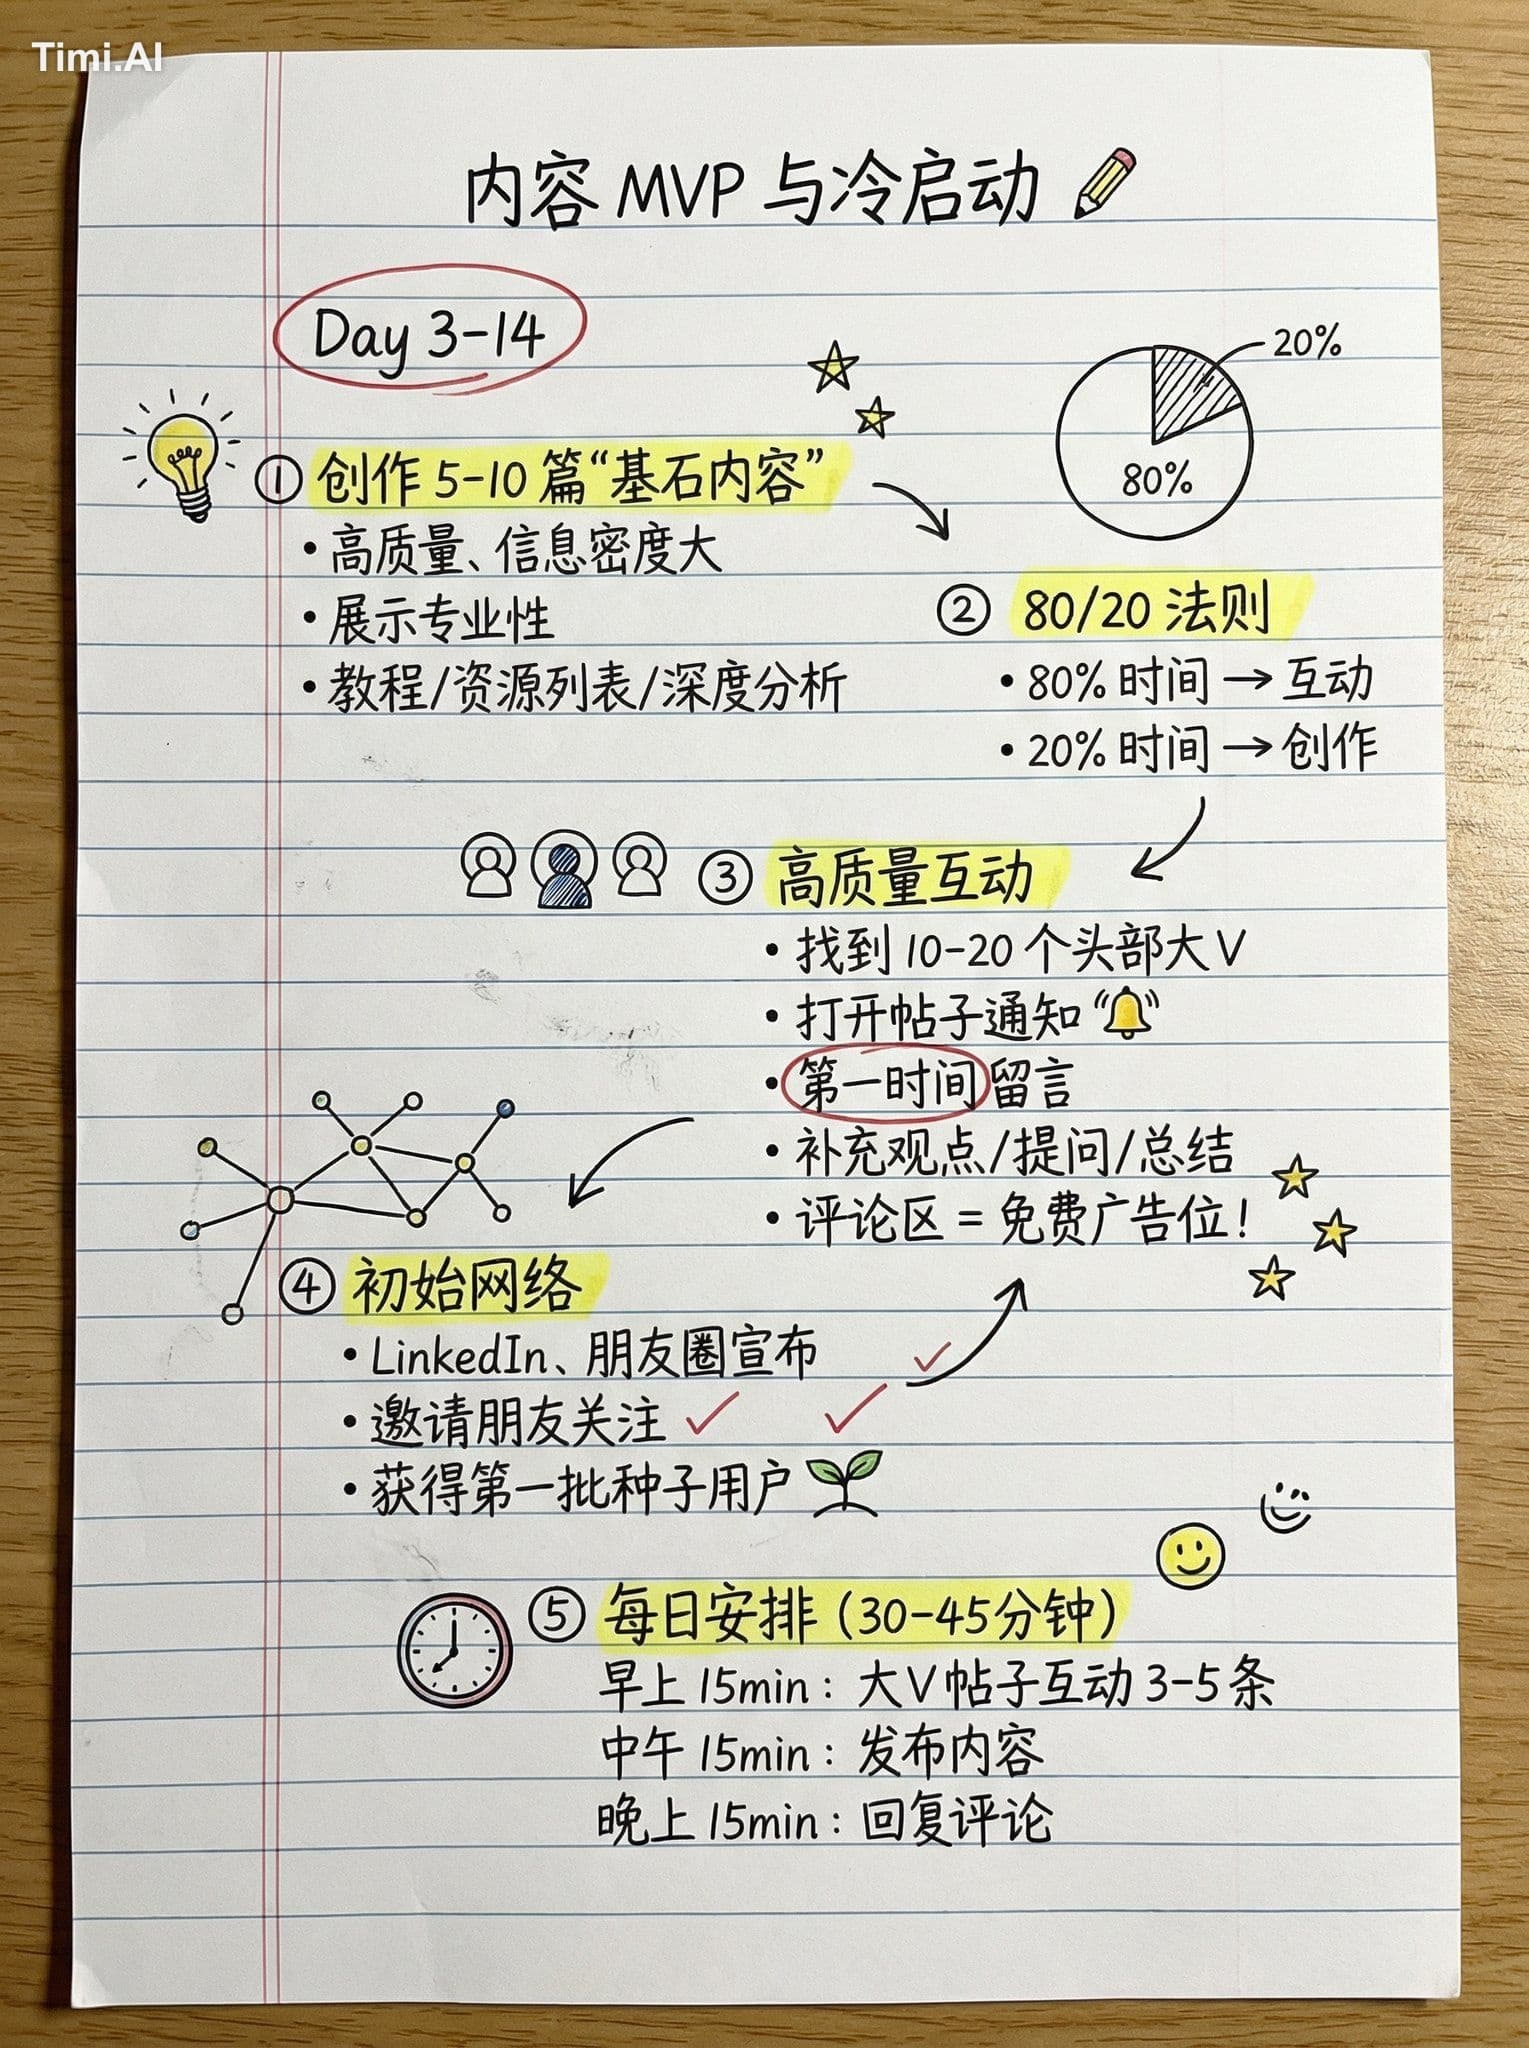 Timi.AI
内容 MVP 与冷启动
Day 3-14
20%
80%
① 创作 5-10 篇“基石内容”
• 高质量、信息密度大
• 展示专业性
• 教程/资源列表/深度分析
② 80/20 法则
• 80% 时间 → 互动
• 20% 时间 → 创作
③ 高质量互动
• 找到 10-20 个头部大 V
• 打开帖子通知
• 第一时间留言
• 补充观点/提问/总结
• 评论区 = 免费广告位!
④ 初始网络
• LinkedIn、朋友圈宣布
• 邀请朋友关注
• 获得第一批种子用户
⑤ 每日安排 (30-45分钟)
早上 15min: 大V帖子互动 3-5 条
中午 15min: 发布内容
晚上 15min: 回复评论